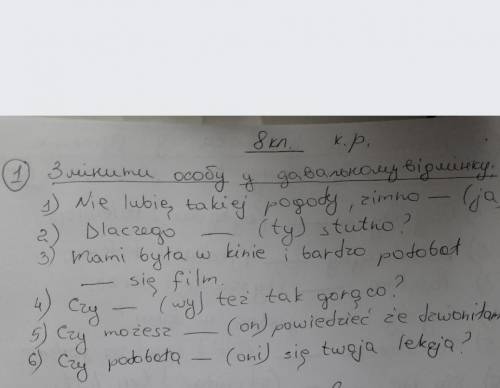 8кл. к.р.
1 Змінити особу у давальному відмінку.
1) Nie lubię takiej pogody, zimno — (ja
2) Dlaczego — (ty) stutno?
3) Mami była w kinie i bardzo podobał
— się film.
4) Czy — (wy) też tak gorąco?
5) Czy możesz — (on) powiedzieć że dzwoniłam
6) Czy podobała — (oni) się twoja lekcja?